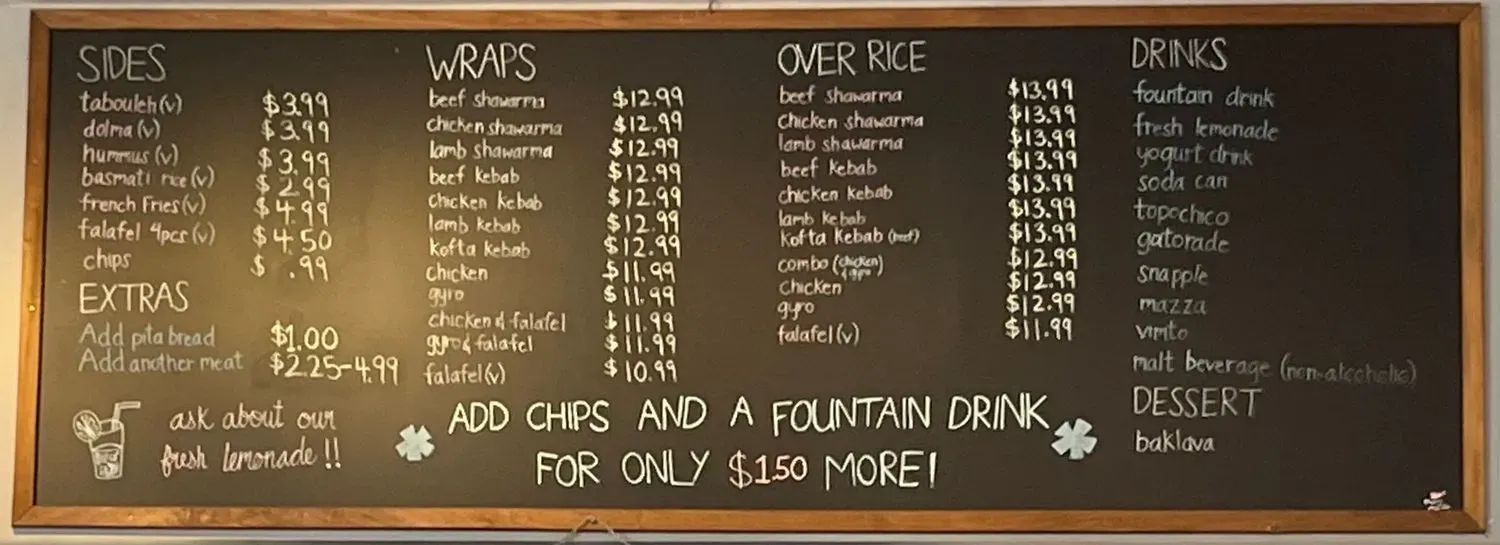 SIDES
tabouleh (v) $3.99
dolma (v) $3.99
hummus (v) $3.99
basmati rice (v) $2.99
french Fries (v) $4.99
falafel 4pcs (v) $4.50
chips $ .99
EXTRAS
Add pita bread $1.00
Add another meat $2.25-4.99
ask about our
fresh lemonade!!
WRAPS
beef shawarma $12.99
chicken shawarma $12.99
lamb shawarma $12.99
beef kebab $12.99
chicken kebab $12.99
lamb kebab $12.99
kofta kebab $12.99
chicken $11.99
gyro $11.99
chicken & falafel $11.99
gyro & falafel $11.99
falafel (v) $10.99
OVER RICE
beef shawarma $13.99
chicken shawarma $13.99
lamb shawarma $13.99
beef kebab $13.99
chicken kebab $13.99
lamb kebab $13.99
kofta kebab (beef) $13.99
combo (chicken & gyro) $12.99
chicken $12.99
gyro $12.99
falafel (v) $11.99
DRINKS
fountain drink
fresh lemonade
yogurt drink
soda can
topochico
gatorade
snapple
mazza
vimto
malt beverage (non-alcoholic)
DESSERT
baklava
ADD CHIPS AND A FOUNTAIN DRINK
FOR ONLY $1.50 MORE!